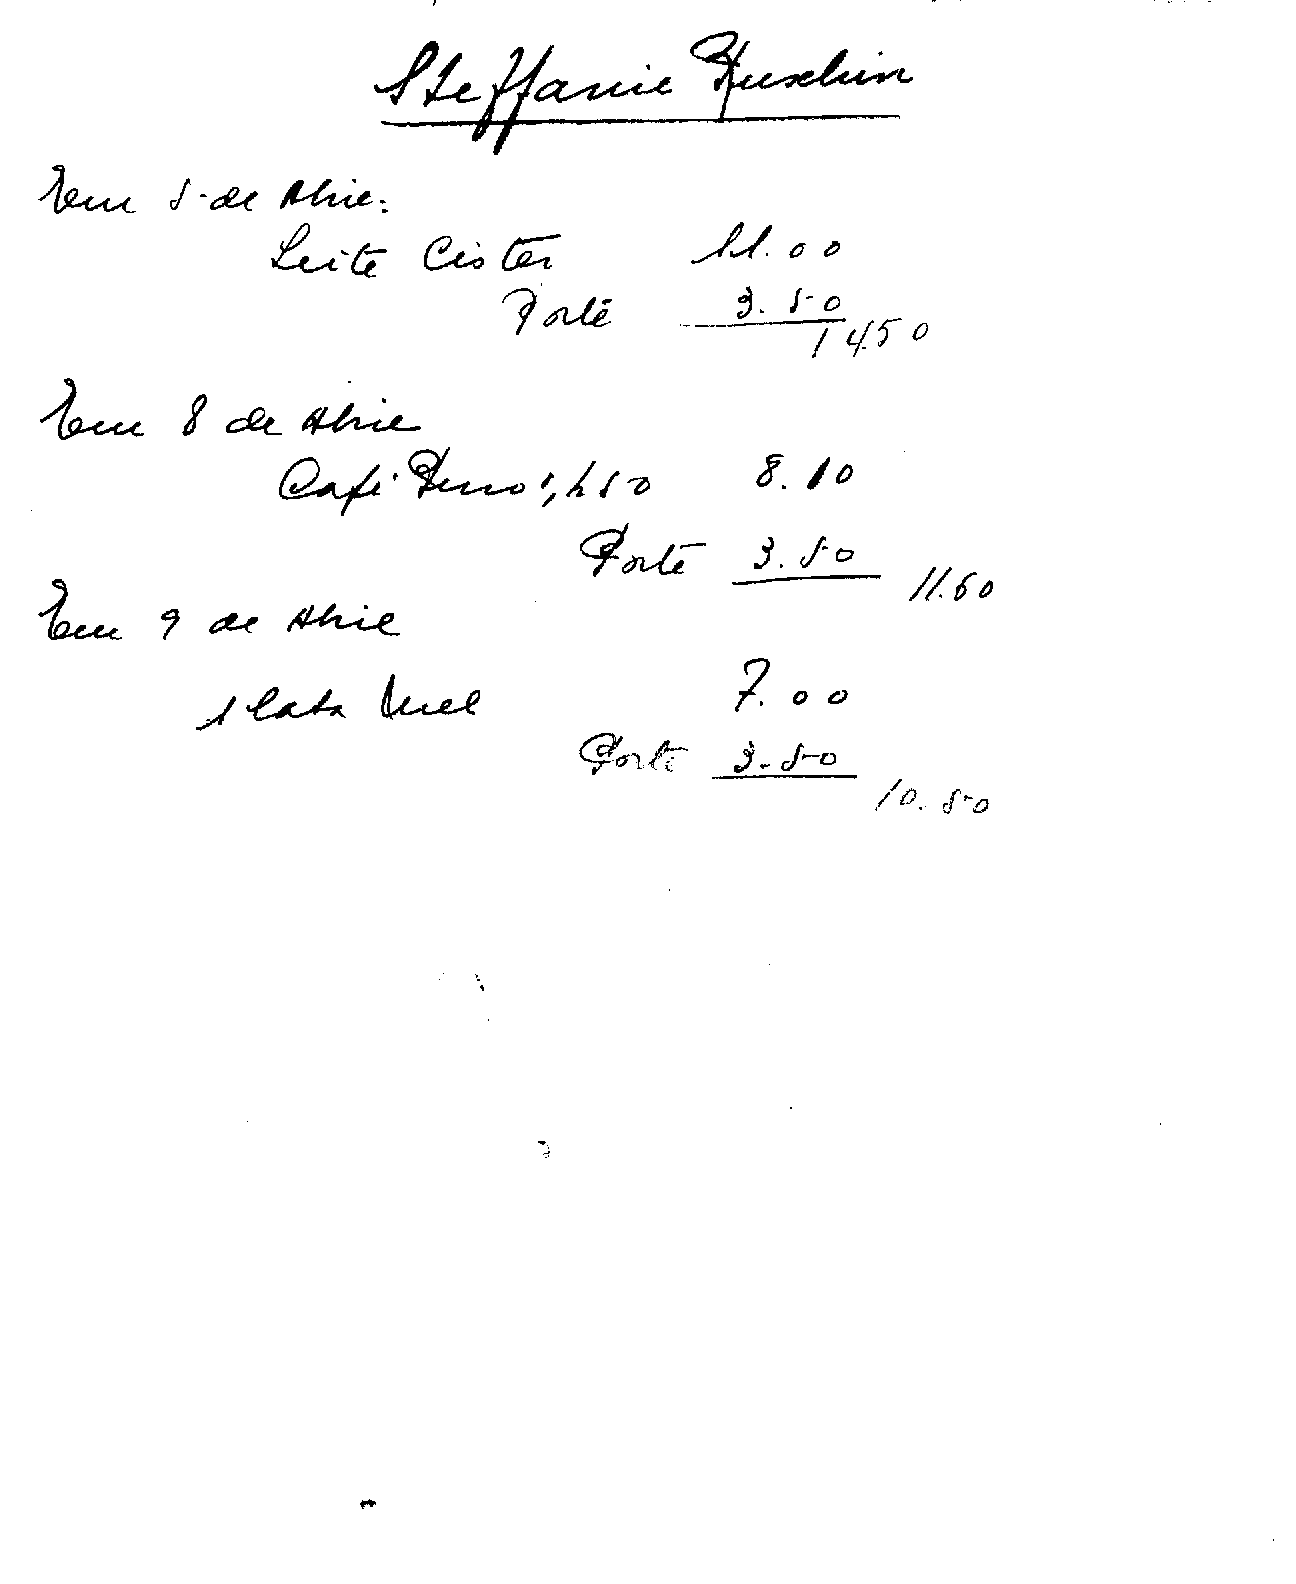 Steffanie
Em 5 de Abril:
Leite Cister 11.00
Porte 3.50
14.50
Em 8 de Abril
Café 8.10
Porte 3.50
11.60
Em 9 de Abril
1 lata Mel 7.00
Porte 3.50
10.50